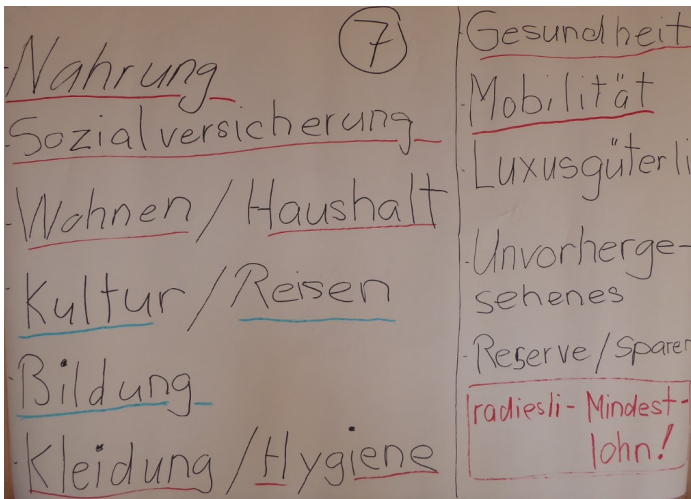 7
- Nahrung
- Sozialversicherung
- Wohnen / Haushalt
- Kultur / Reisen
- Bildung
- Kleidung / Hygiene
- Gesundheit
- Mobilität
- Luxusgüterli
- Unvorherge-
sehenes
- Reserve / Sparen
radiesli - Mindest-
lohn!